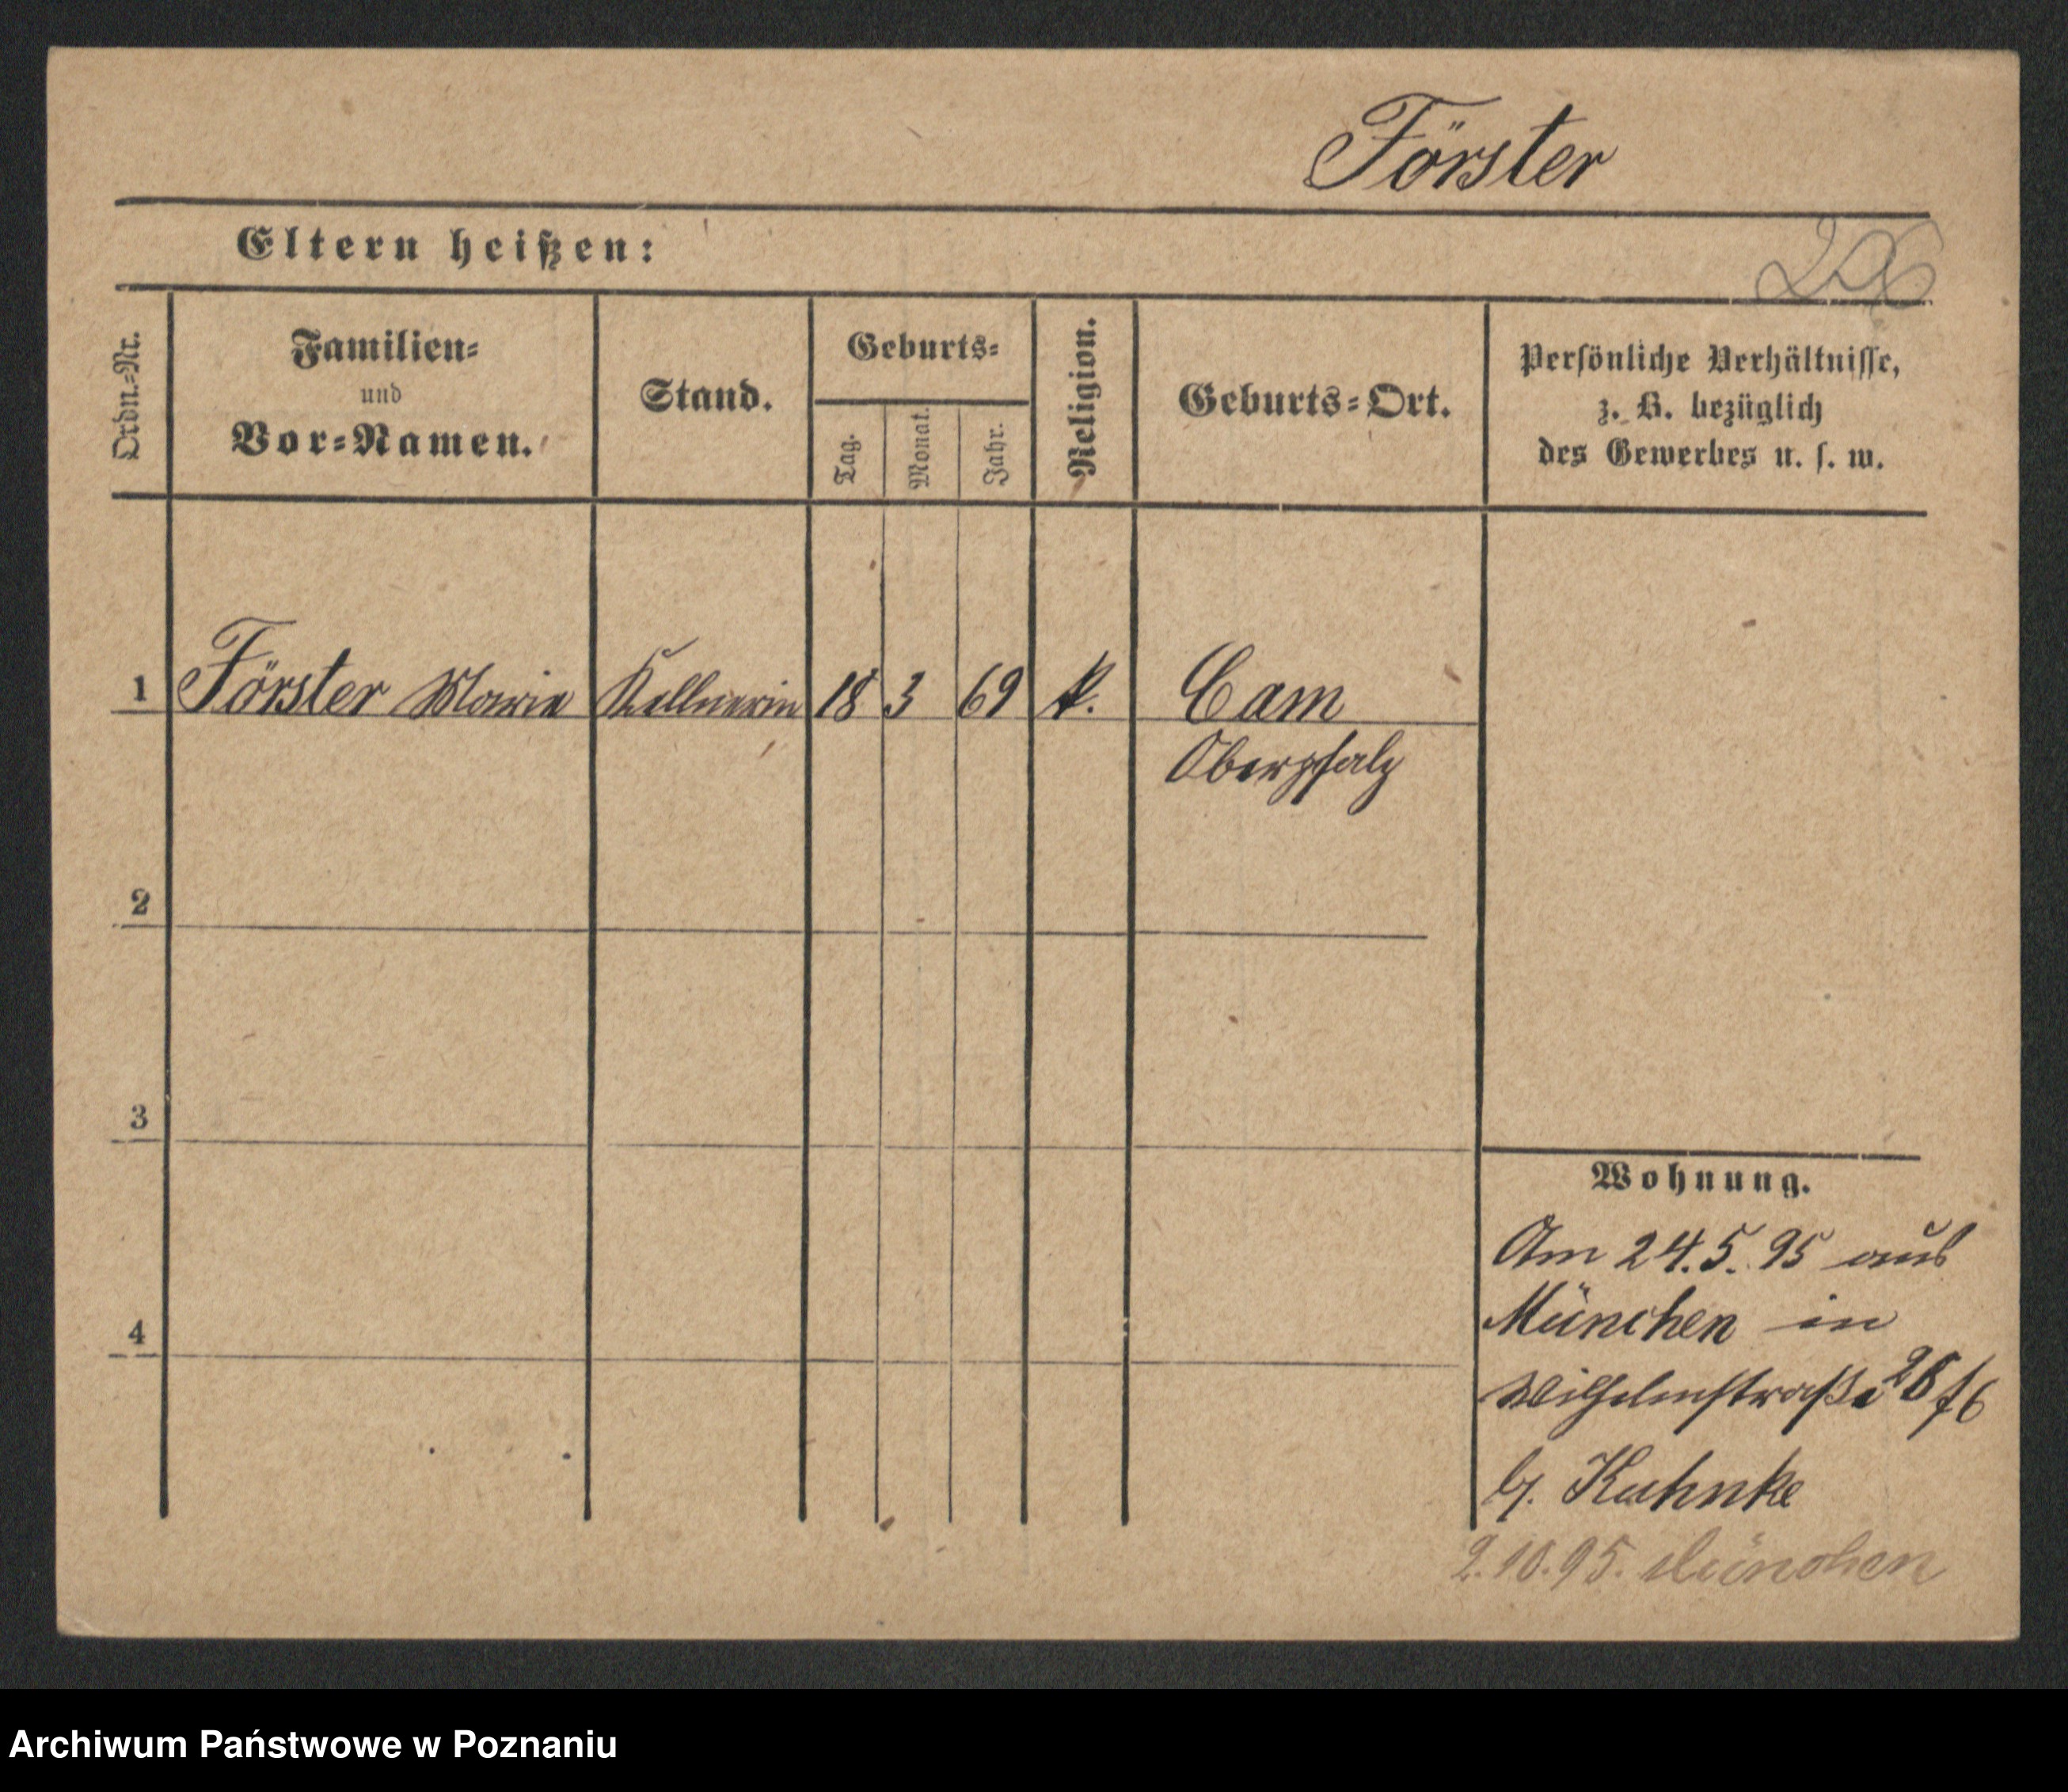 Förster
Eltern heißen:
Ordn.=Nr.
Familien=
und
Vor=Namen.
Stand.
Geburts=
Tag.
Monat.
Jahr.
Religion.
Geburts=Ort.
Persönliche Verhältnisse,
z. B. bezüglich
des Gewerbes u. s. w.
1 Förster Marie Kellnerin 18 3 69 k. Cam
Oberpfalz
2
3
4
Wohnung.
Am 24.5.95 aus
München in
Wilhelmstraße
b/. Kuhnke
2.10.95. München
Archiwum Państwowe w Poznaniu